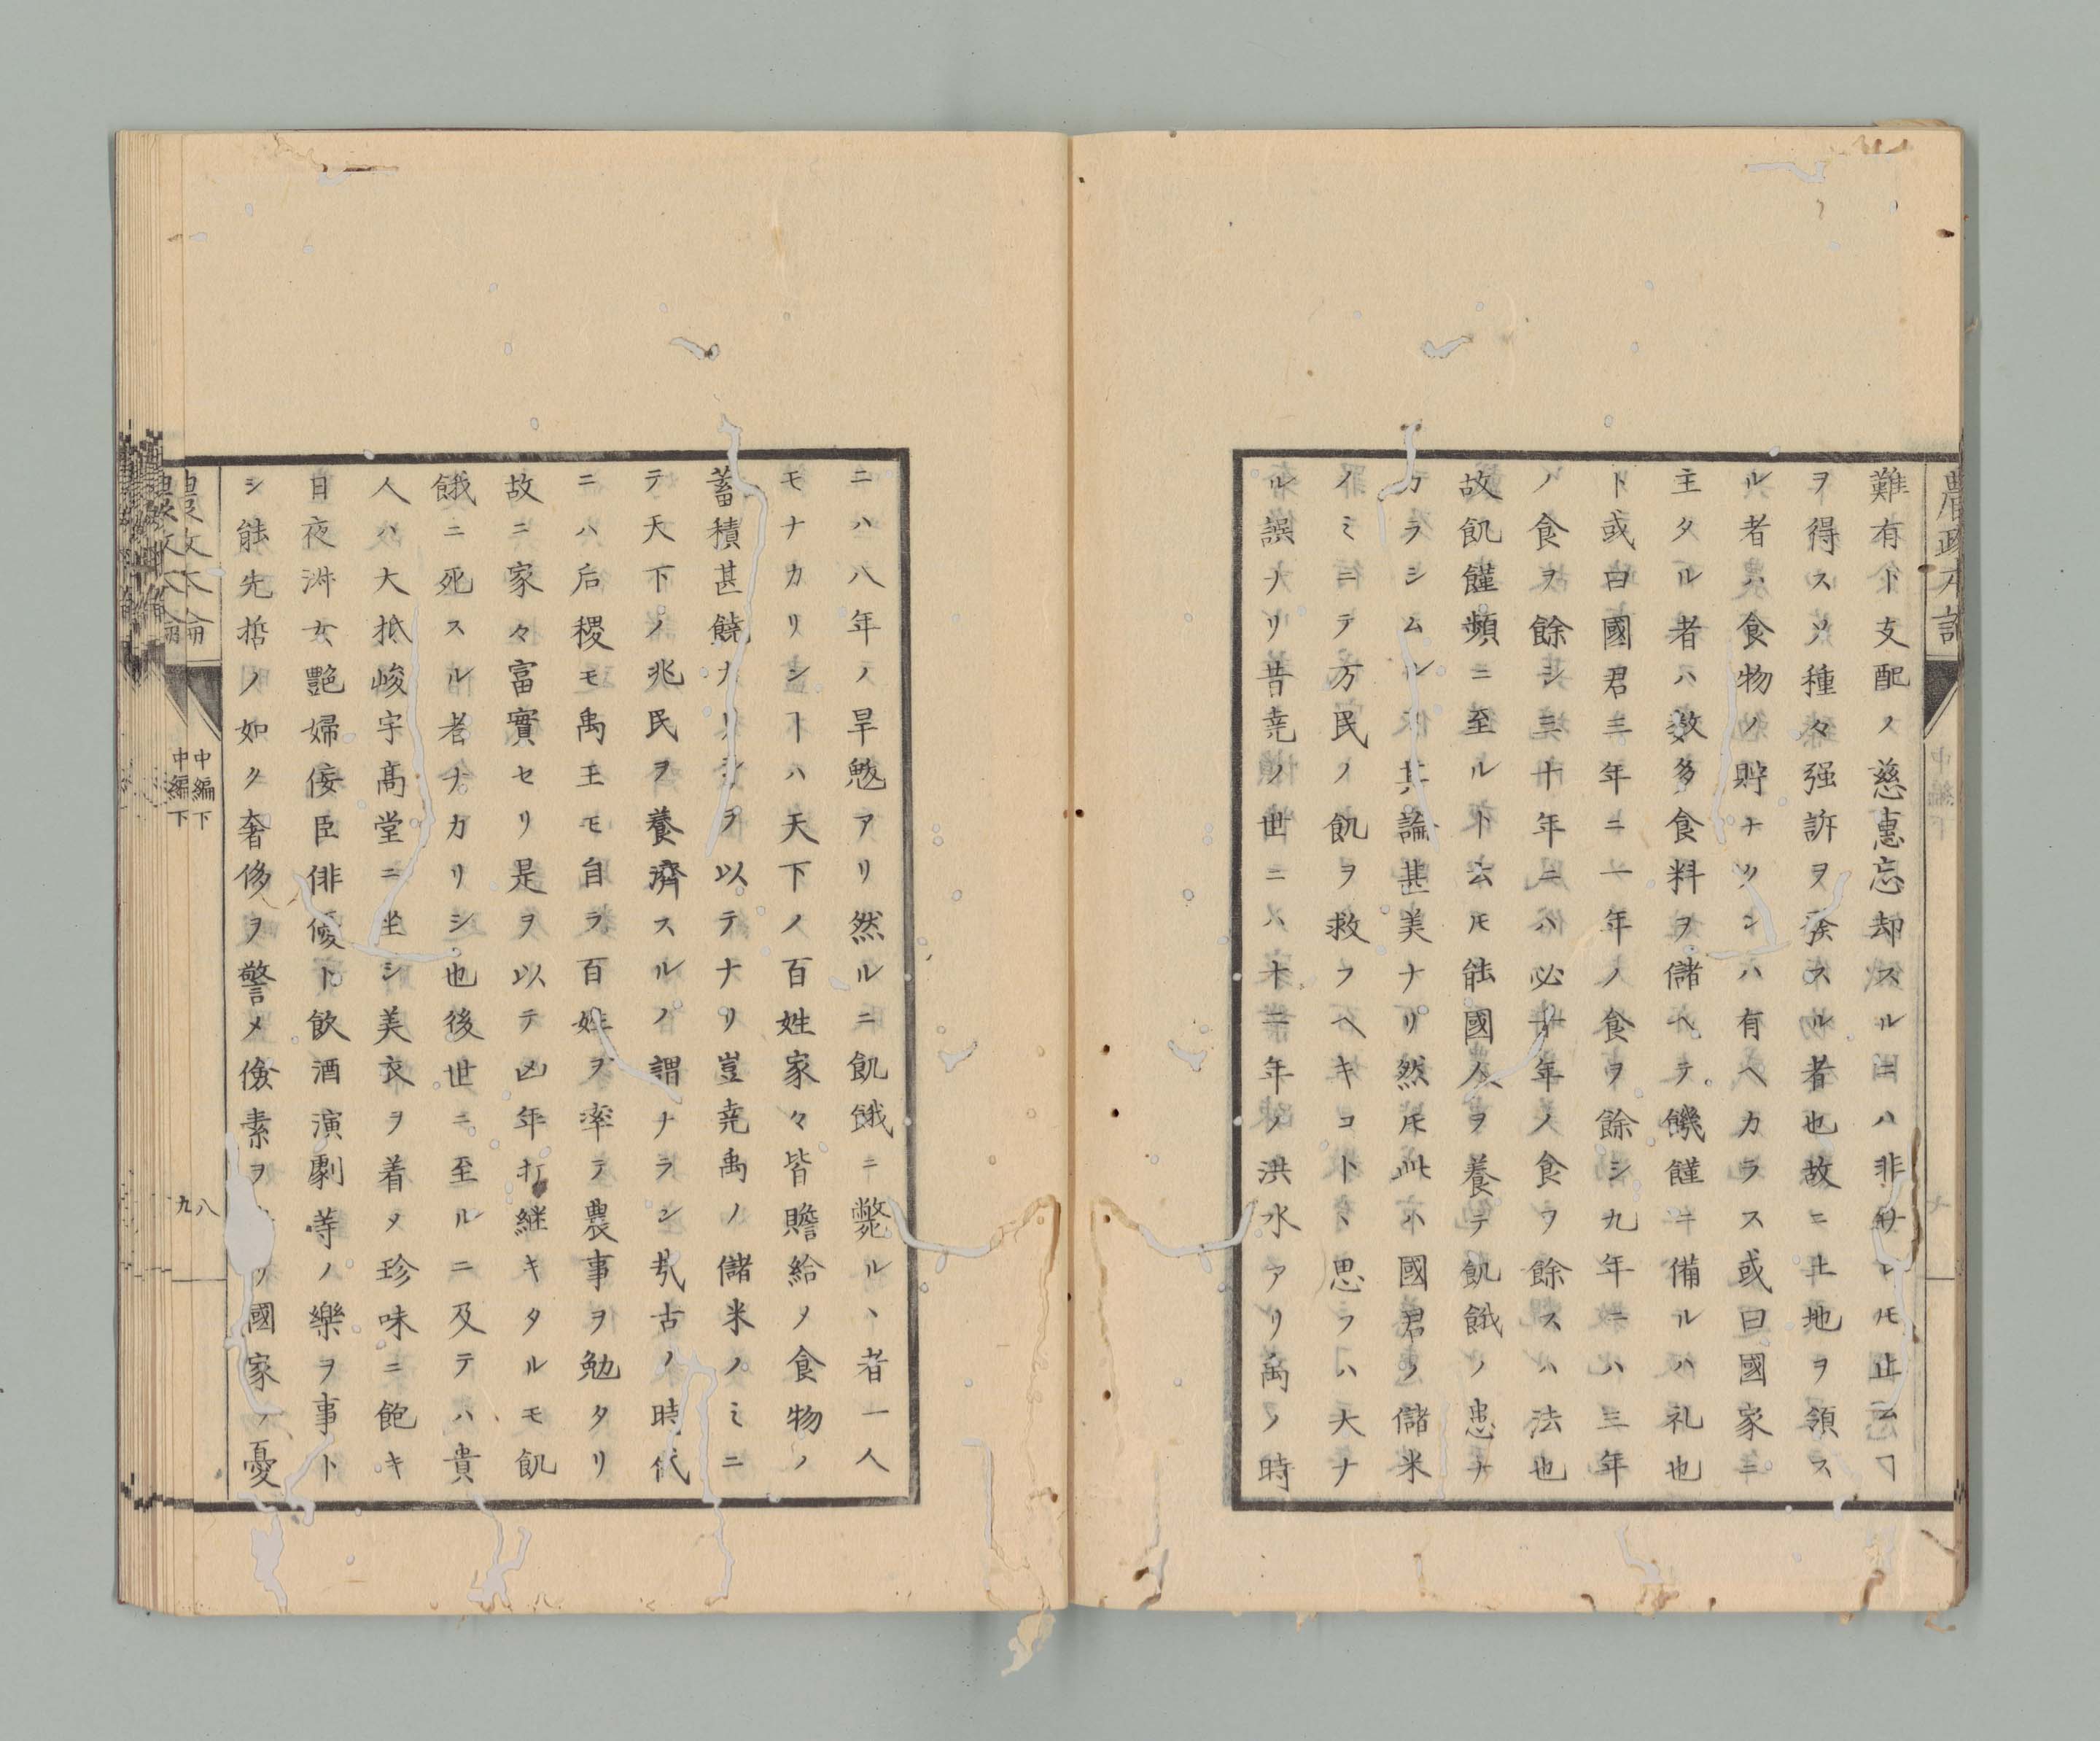 難有ト支配ノ慈惠忘却スルニハ非サレ𪜈止ムヿ
ヲ得スソ種々强訴ヲ發スル者也故ニ土地ヲ領ス
ル者ハ食物ノ貯ナクンハ有ヘカラス或曰國家ニ
主タル者ハ數多食料ヲ儲ヘテ饑饉ニ備ルハ礼也
ト或曰國君三年ニ一年ノ食ヲ餘シ九年ニハ三年
ノ食ヲ餘シ三十年ニハ必十年ノ食ヲ餘スハ法也
故飢饉頻ニ至ルト云𪜈能國人ヲ養テ飢餓ノ患ナ
カラシムルト其論甚美ナリ然𪜈此ハ國君ノ儲米
ノミニテ万民ノ飢ヲ救フヘキコトヽ思フハ大ナ
ル誤ナリ昔堯ノ世ニハ十二年ノ洪水アリ禹ノ時
ニハ八年ノ旱魃アリ然ルニ飢餓ニ斃ルヽ者一人
モナカリシトハ天下ノ百姓家々皆贍給ノ食物ノ
蓄積甚饒ナリシヲ以テナリ豈堯禹ノ儲米ノミニ
テ天下ノ兆民ヲ養濟スルノ謂ナランヤ古ノ時代
ニハ后稷モ禹王モ自ラ百姓ヲ率テ農事ヲ勉タリ
故ニ家々富實セリ是ヲ以テ凶年打継キタルモ飢
餓ニ死スル者ナカリシ也後世ニ至ルニ及テハ貴
人ハ大抵峻宇高堂ニ坐シ美衣ヲ着タ珍味ニ飽キ
日夜
艶婦佞臣俳優ト飲酒演劇等ノ樂ヲ事ト
シ能先哲ノ如ク奢侈ヲ警メ儉素ヲ
國家ノ憂
農政本論
中編下
八
中編下
九